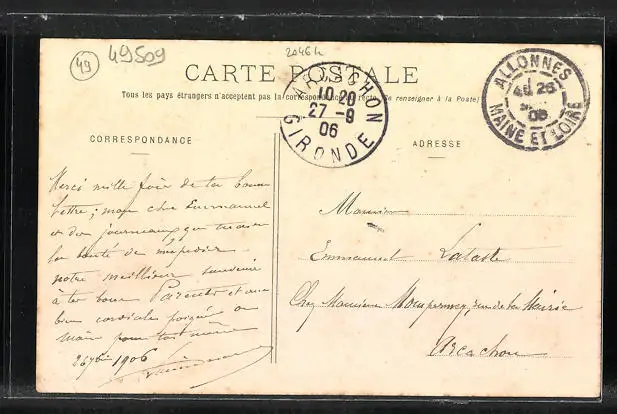 49
49509
2046h
CARTE POSTALE
Tous les pays étrangers n'acceptent pas la correspondance au recto (Se renseigner à la Poste)
ARCACHON
10 20
27 -9
06
GIRONDE
ALLONNES
26
06
MAINE ET LOIRE
CORRESPONDANCE
ADRESSE
Merci mille fois de ta bonne
lettre; mon cher Emmanuel
et des journaux que tu as eu
la bonté de
notre meilleur souvenir
à tes bons Parents et une
bien cordiale poignée de
main pour toi même
26 7bre 1906
Monsieur
Emmanuel Lataste
Chez Monsieur rue de la Mairie
Arcachon